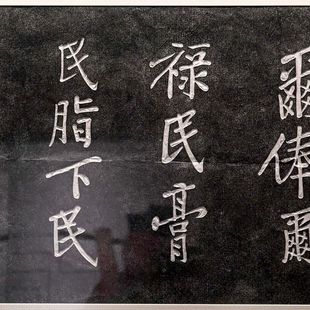 爾俸爾
禄民膏
民脂下民